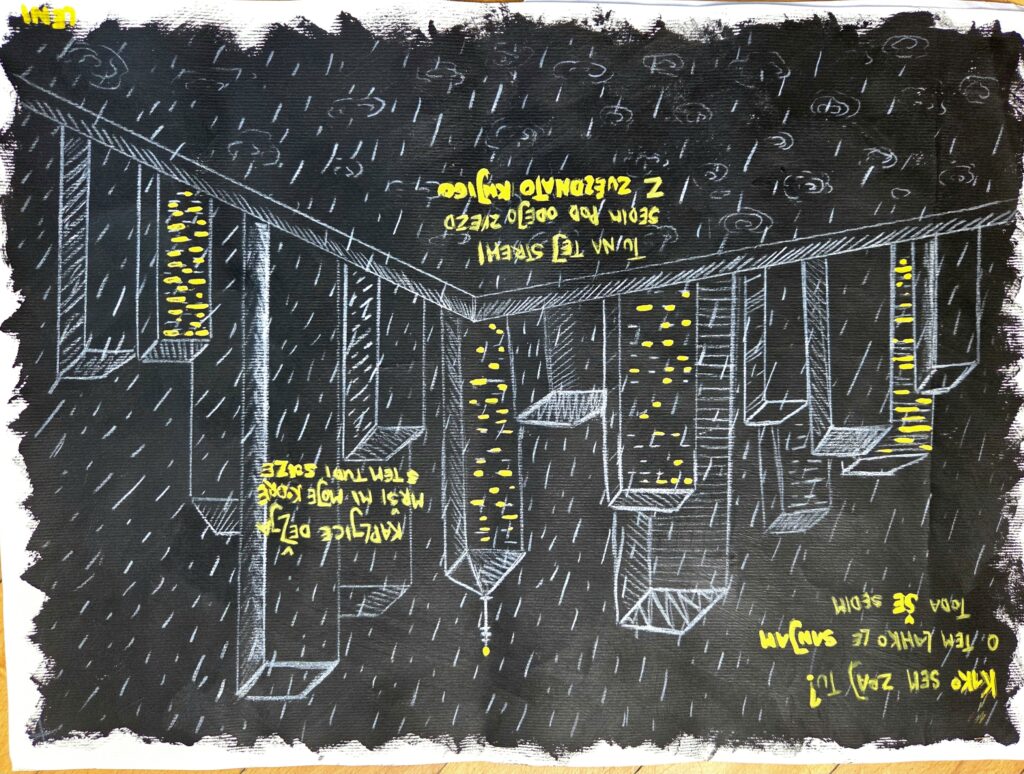 KAKO SEM ZDAJ TU?
O, TEM LAHKO LE SANJAM
TODA ŠE SEDIM
KAPLJICE DEŽJA
MRŠI MI MOJE KODRE
S TEM TUDI SOLZE
TU, NA TEJ STREHI
SEDIM POD ODEJO ZVEZD
Z ZVEZDNATO KNJIGO
LENI